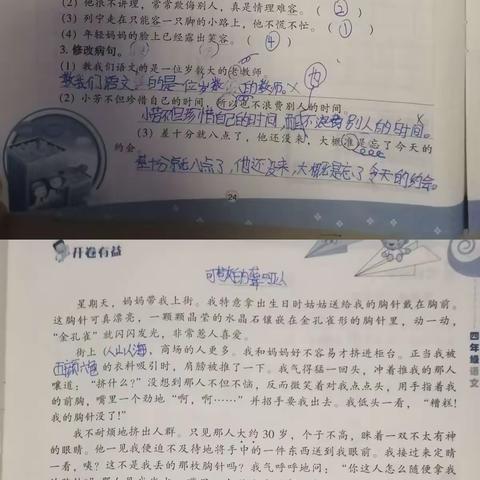 (2) 他很不讲理，常常欺侮别人，真是情理难容。（②）
(3) 列宁走在只能容一只脚的小路上，他不慌不忙。（①）
(4) 年轻妈妈的脸上已经露出笑容。（④）
3. 修改病句。
(1) 教我们语文的是一位岁数大的老教师。
教我们语文的是一位岁数 的教师。
(2) 小芳不但珍惜自己的时间，所以也不浪费别人的时间。
小芳不但珍惜自己的时间，而且不浪费别人的时间。
(3) 差十分就八点了，他还没来，大概准是忘了今天的
约会。
差十分就八点了，他还没来，大概是忘了今天的约会。
24
开卷有益
星期天，妈妈带我上街。我特意拿出生日时姑姑送给我的胸针戴在胸前。
这胸针可真漂亮，一颗颗晶莹的水晶石镶嵌在金孔雀形的胸针里，动一动，
“金孔雀”就闪闪发光，非常惹人喜爱。
街上（人山人海，商场的人更多。我和妈妈好不容易才挤进柜台。正当我被
五颜六色的衣料吸引时，肩膀被推了一下。我气得猛一回头，冲着推我的那人
嚷道：“挤什么？”没想到那人不但不恼，反而微笑着对我点点头，用手指着我
的前胸，嘴里一个劲地“啊，啊……”并招手要我出去。我低头一看，“糟糕！
我的胸针没了！”
我不耐烦地挤出人群。只见那人大约 30 岁，个子不高，眯着一双不太有神
的眼睛。他一见我便迫不及待地将手中的一件东西送到我眼前。我接过来定睛
一看，咦？这不是我丢的那枚胸针吗？我气呼呼地问：“你这人怎么随便拿我
四年级语文